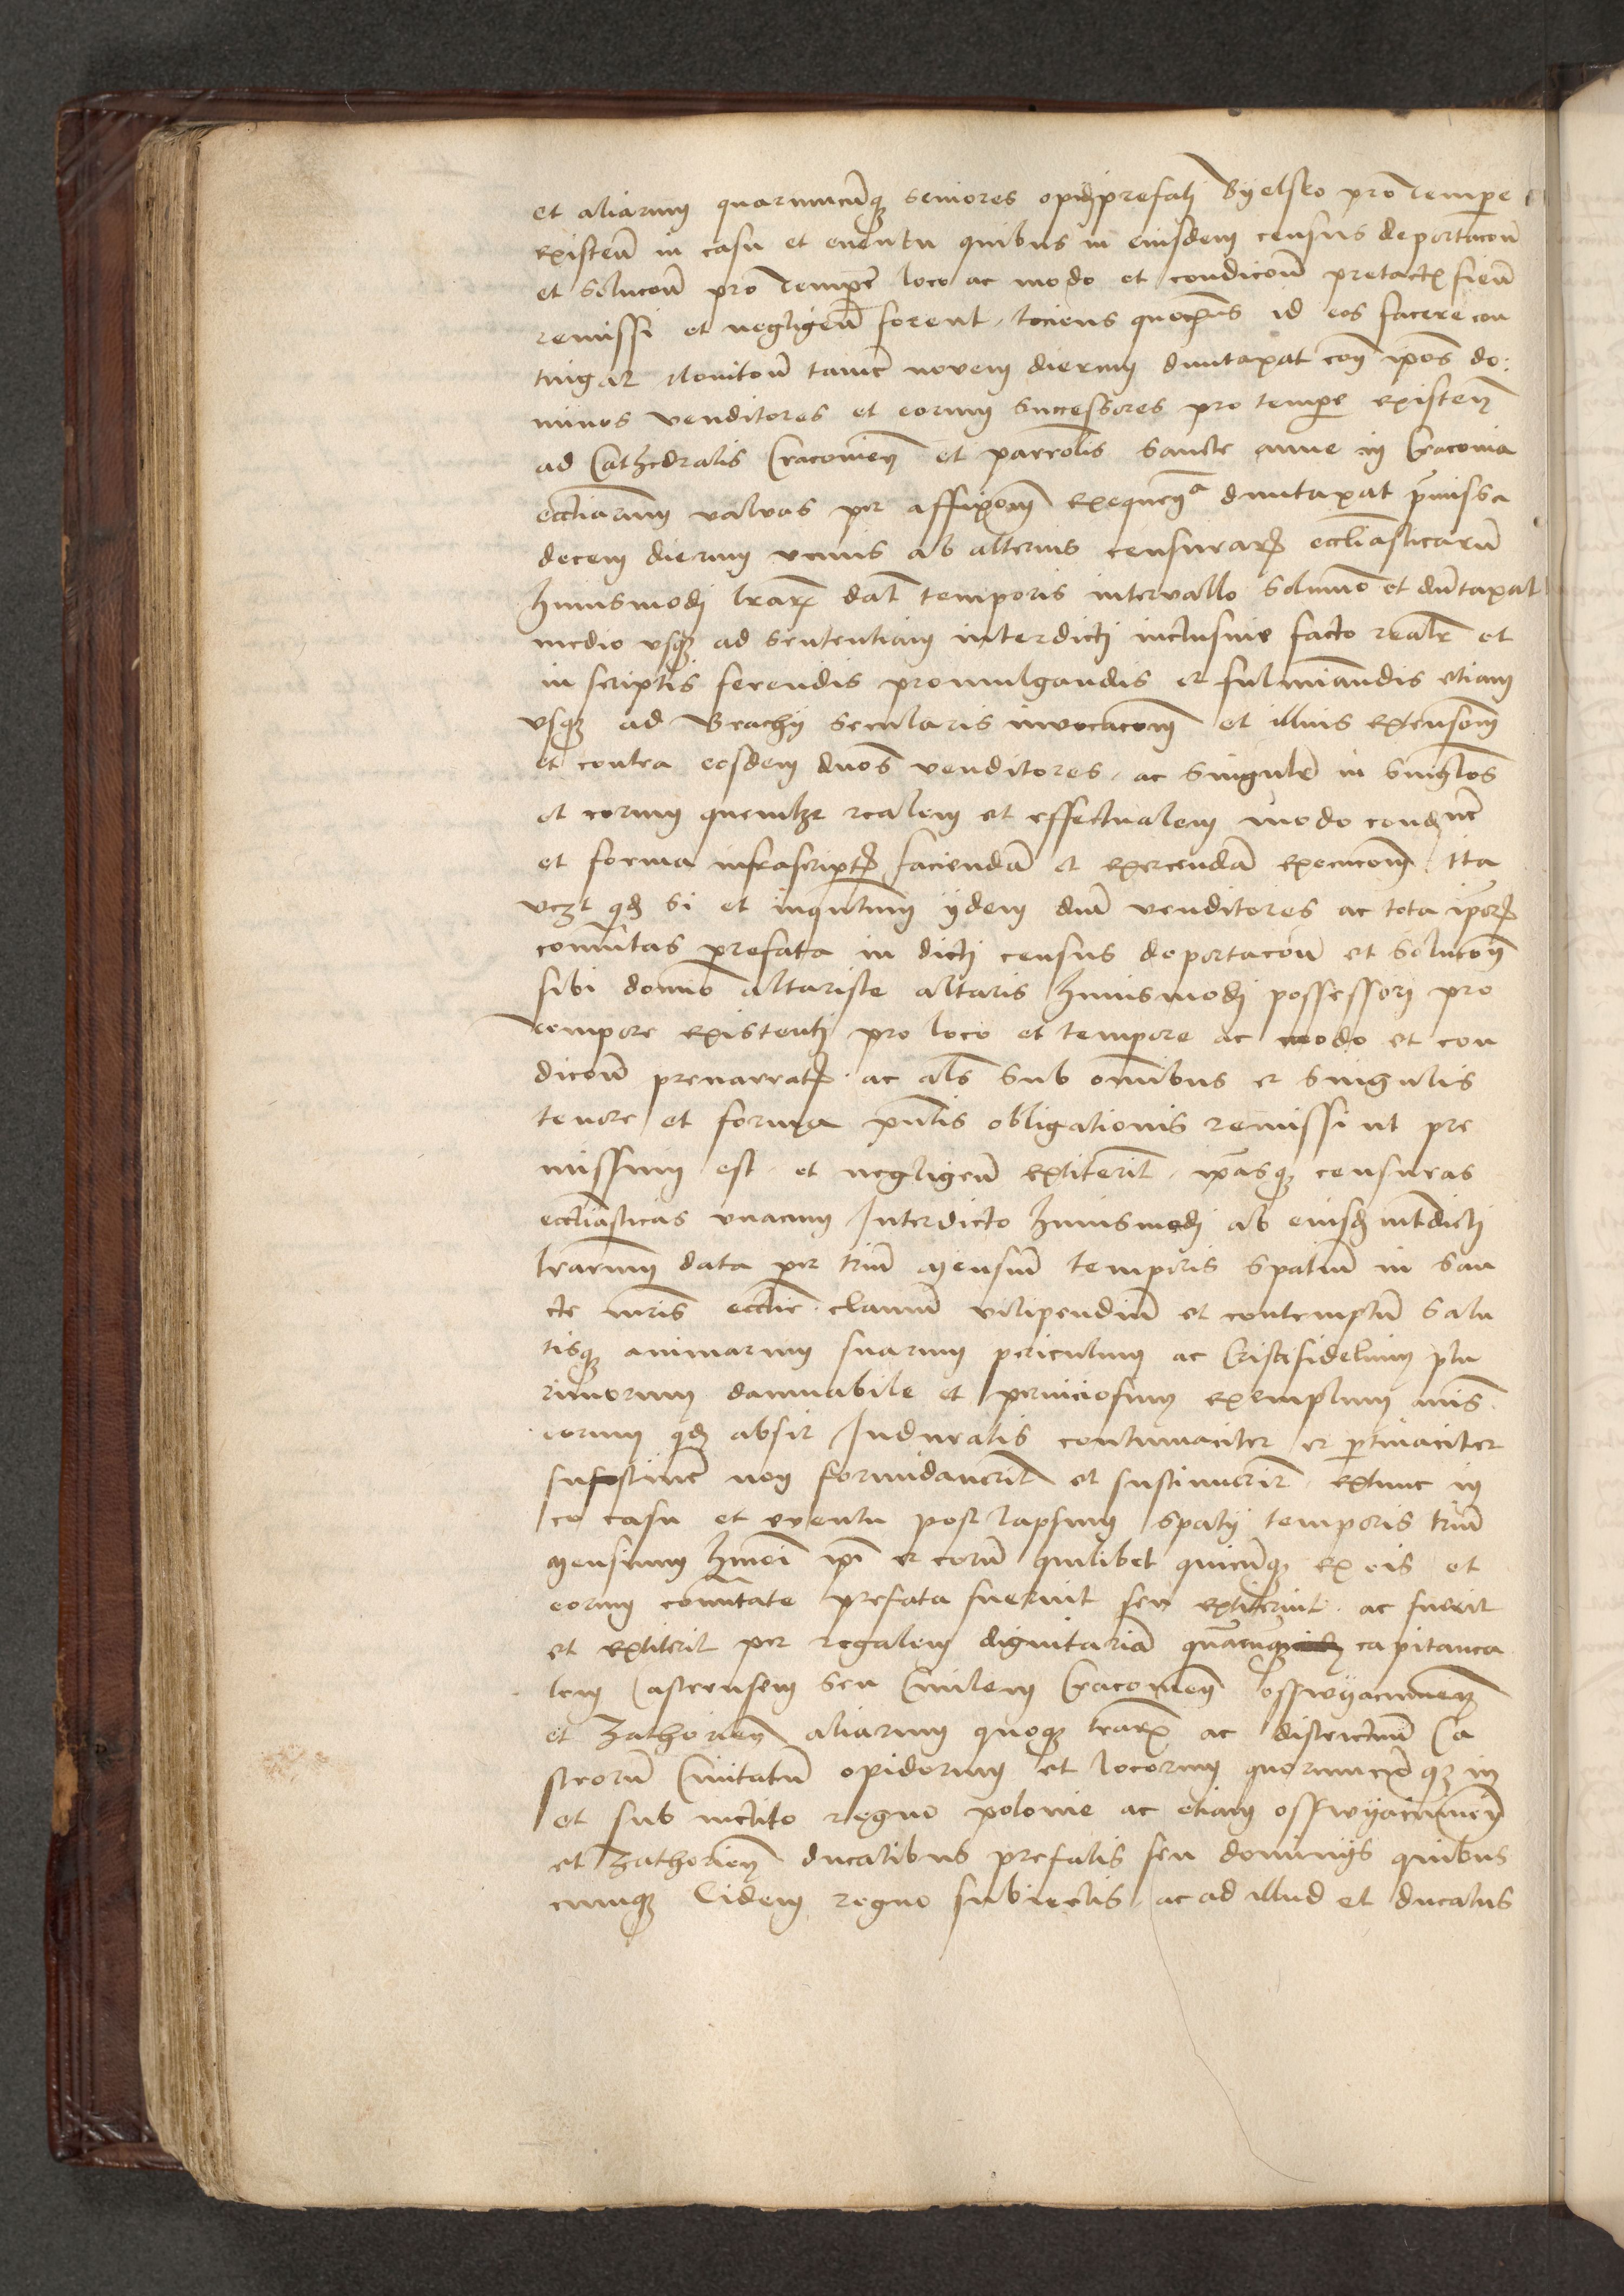 et aliarum quarumcunq seniores opidi prefati Byelsko pro tempore
existen in casu et euentu quibus in eiusdem census deportacon
et solucon pro tempore loco ac modo et condicon pretactis fien
remissi et negligen forent, tociens quociens id eos facere con
tingat Monicon tamen novem dierum duntaxat con ipos do:
minos venditores et eorum successores pro tempore existen
ad Cathedralis Cracovien et parrolis Sancte Anne in Cracovia
eccliarum valvas per affixcom duntaxat pmissa
decem dierum vnius ab alterius censurar eccliasticaru
huiusmodi lrar dat temporis intervallo solummo et duntaxat
medio vsq ad sententiam interdicti inclusive facto realr et
in scriptis ferendis promulgandis et fulminandis etiam
vsq ad Brachij secularis invocacom et illius extensom
et contra eosdem dnos venditores, ac singulr in singulos
et eorum quemlibet realem et effectualem modo condicne
et forma infrascript, facienda et exercenda execucom Ita
vczt qd si et inqutum ijdem dni venditores ac tota ipor
comitas prefata in dicti census deportacon et solucon
sibi domno altariste altaris huiusmodi possessori pro
tempore existenti pro loco et tempore ac modo et con
dicon prenarrat. ac als sub omnibus et singulis
tenore et forma pntis obligationis remissi ut pre
missum est et negligen extiterit, ipasq censuras
eccliasticas vnacum Interdicto huiusmodi ab eiusd intdicti
lrarum data per trium mensium temporis spatium in san
cte mris ecclie clauium vilipendium et contemptum salu
tisq animarum suarum periculum ac Cristifidelium plu
rimorum damnabile et perniciosum exemplum anis
eorum qd absit Induratis contumaciter et ptinaciter
sustinere non formidauerit et sustinuerit, extunc in
eo casu et eventu post lapsum spatij temporis trium
mensium hmoi ipi et eorum quilibet quicunq ex eis et
eorum comitate prefata fuerint seu extiterint, ac fuerit
et extiterit per regalem dignitaria quacunq capitanea
lem Castrensem seu Civilem Cracovien osswyacimien
et Zathorien aliarum quoq trar ac districtuum Ca
strorum Civitatum opidorum et locorum quorumcunq in
et sub inclito regno polonie ac etiam osswyacimien
et Zathorien ducatibus prefatis seu dominijs quibus
cunq Eidem regno subiectis, ac ad illud et ducatus